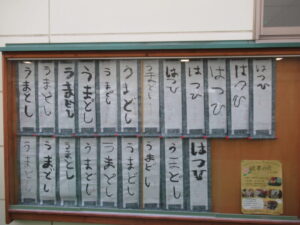 はつひ
はつひ
はつひ
はつひ
はつひ
うまどし
うまどし
うまどし
うまどし
うまどし
うまどし
うまどし
はつひ
うまどし
うまどし
うまどし
うまどし
うまどし
うまどし
うまどし
うまどし